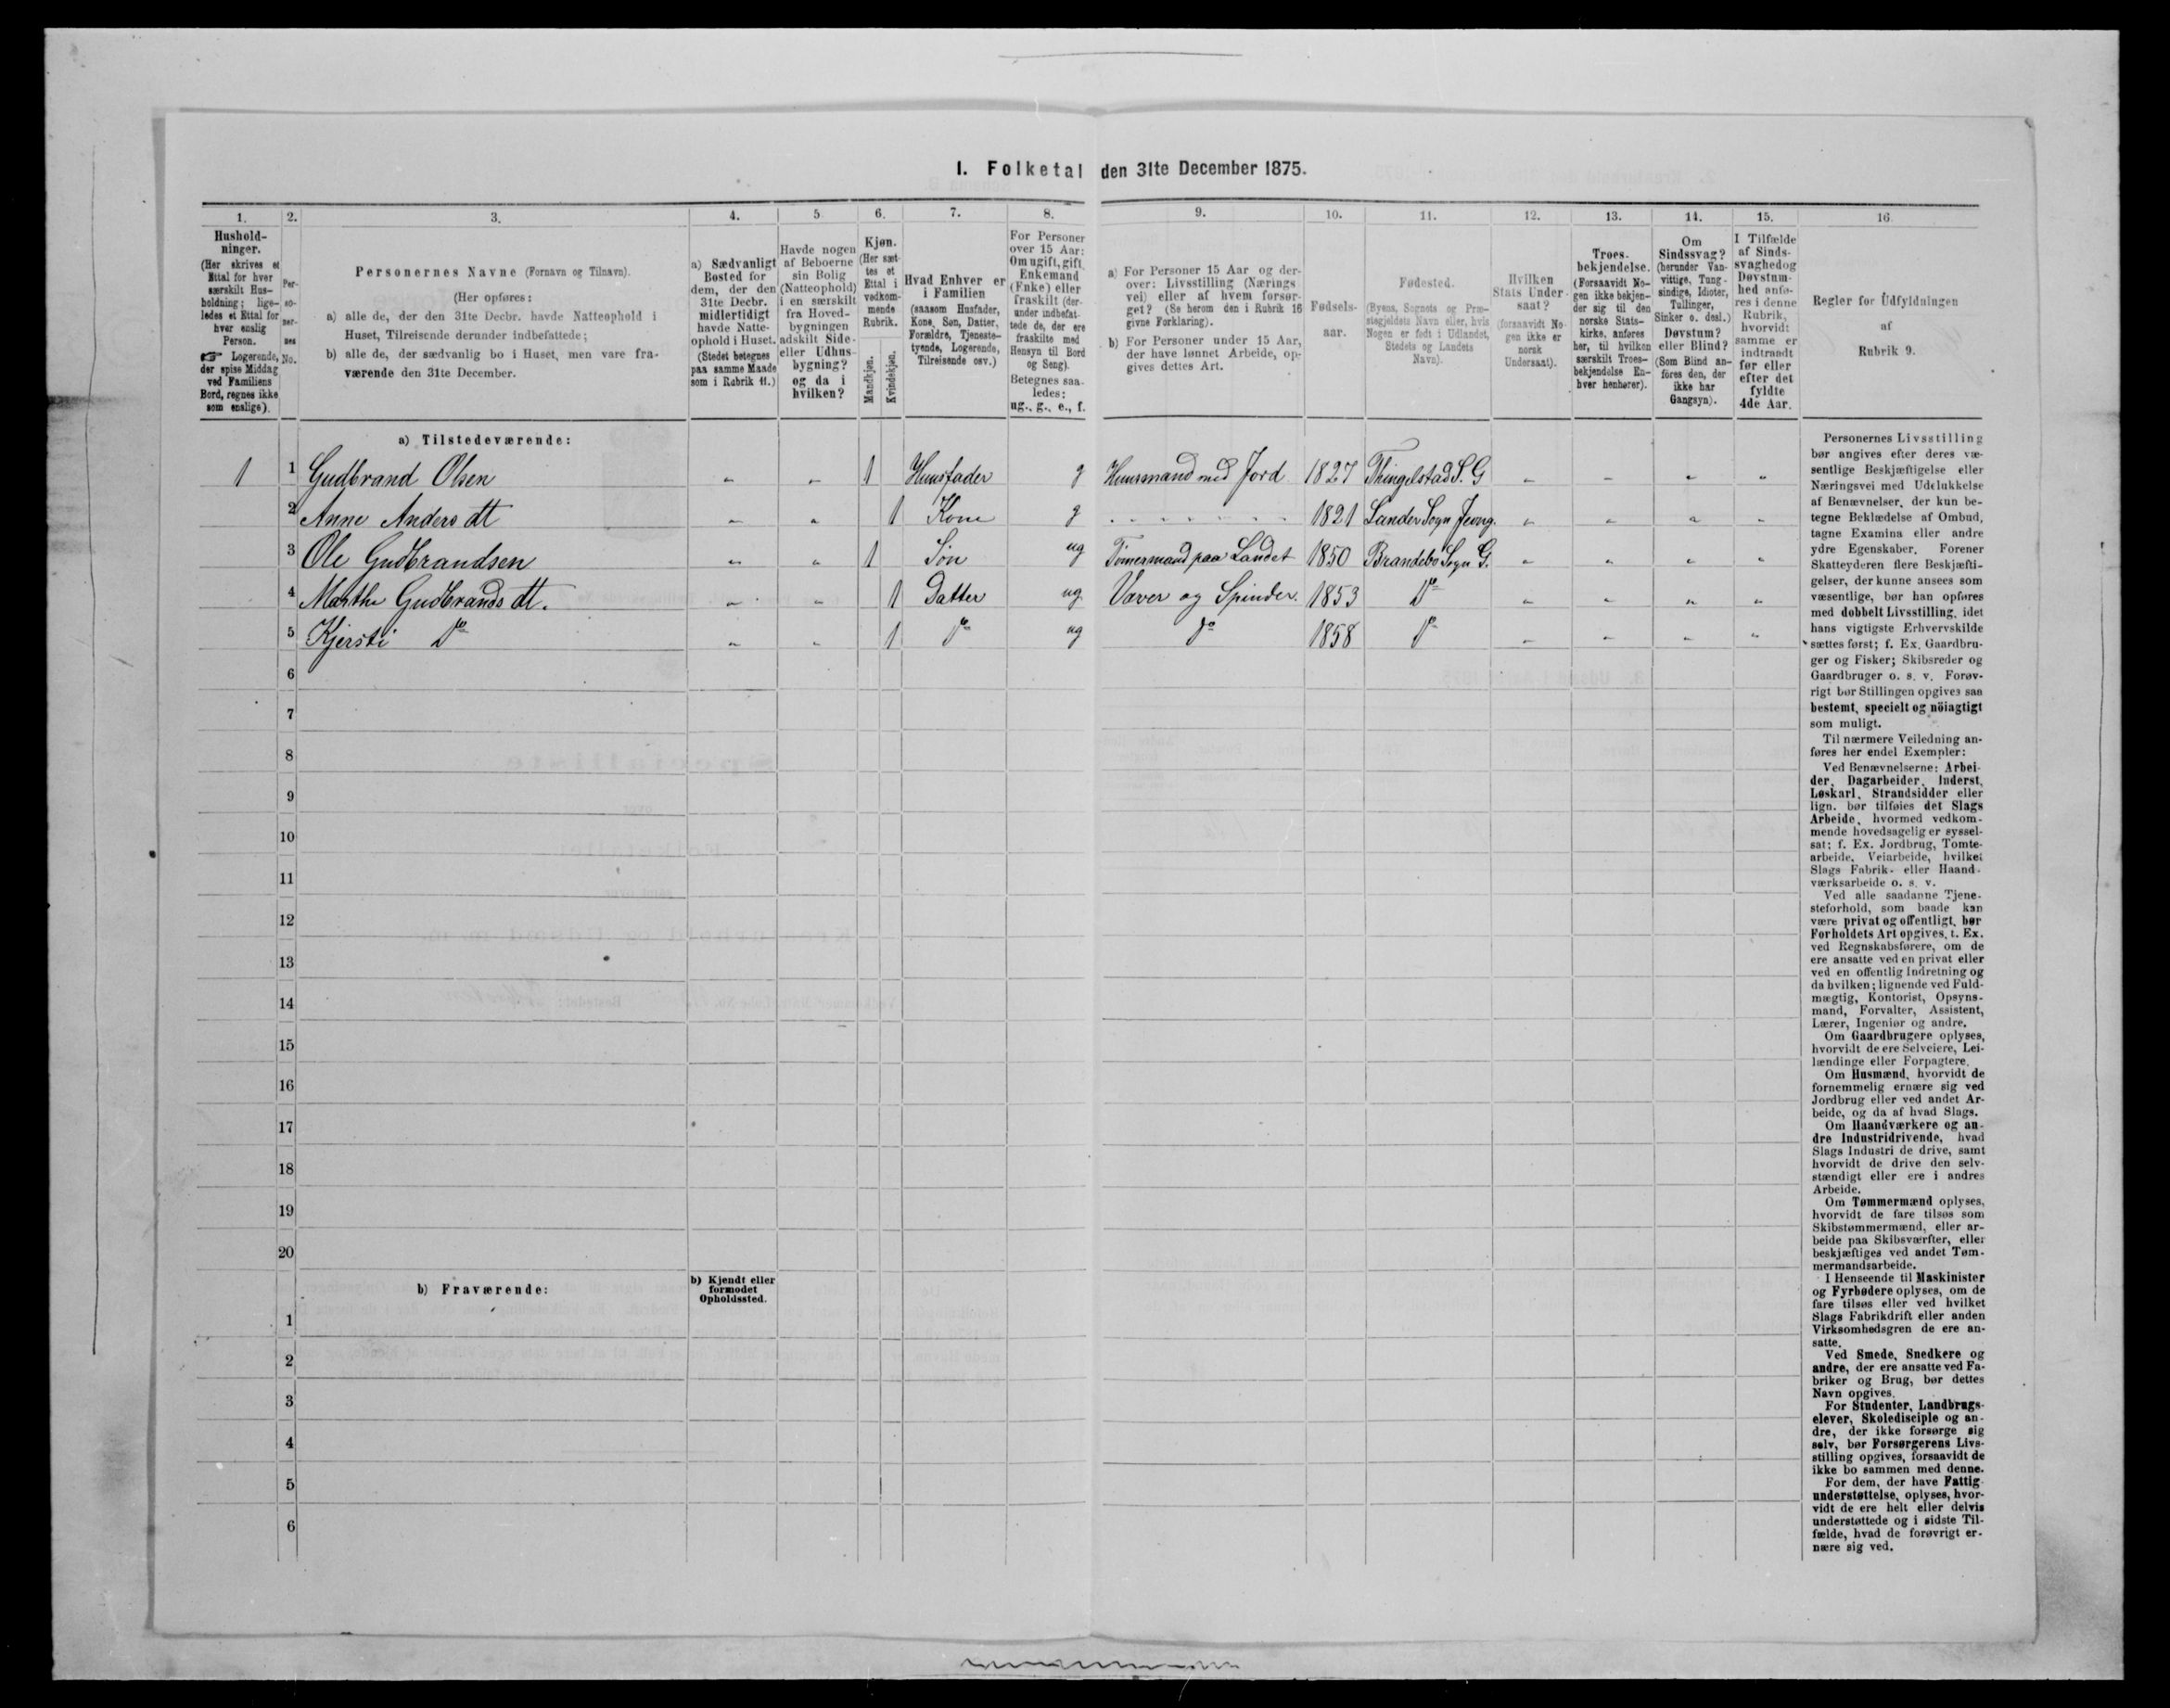 I. Folketal den 31te December 1875.
1. 2. 3. 4. 5 6. 7. 8. 9. 10. 11. 12. 13. 14. 15. 16
Hushold-
ninger.
(Her skrives et
Ettal for hver
særskilt Hus-
holdning; lige-
ledes et Ettal for
hver enslig
Person.
☞ Logerende,
der spise Middag
ved Familiens
Bord, regnes ikke
som enslige).
Per-
so-
ner-
nes
No.
Personernes Navne (Fornavn og Tilnavn).
(Her opføres:
a) alle de, der den 31te Decbr. havde Natteophold i
Huset, Tilreisende derunder indbefattede;
b) alle de, der sædvanlig bo i Huset, men vare fra-
værende den 31te December.
a) Sædvanligt
Bosted for
dem, der den
31te Decbr.
midlertidigt
havde Natte-
ophold i Huset.
(Stedet betegnes
paa samme Maade
som i Rubrik 11.)
Havde nogen
af Beboerne
sin Bolig
(Natteophold)
i en særskilt
fra Hoved-
bygningen
adskilt Side-
eller Udhus-
bygning?
og da i
hvilken?
Kjøn.
(Her sæt-
tes et
Ettal i
vedkom-
mende
Rubrik.
Mandkjøn.
Kvindekjøn.
Hvad Enhver er
i Familien
(saasom Husfader,
Kone, Søn, Datter,
Forældre, Tjeneste-
tyende, Logerende,
Tilreisende osv.)
For Personer
over 15 Aar:
Om ugift, gift,
Enkemand
(Enke) eller
fraskilt (der-
under indbefat-
tede de, der ere
fraskilte med
Hensyn til Bord
og Seng).
Betegnes saa-
ledes:
ug., g., e., f.
a) For Personer 15 Aar og der-
over: Livsstilling (Nærings
vei) eller af hvem forsør-
get? (Se herom den i Rubrik 16
givne Forklaring).
b) For Personer under 15 Aar,
der have lønnet Arbeide, op-
gives dettes Art.
Fødsels-
aar.
Fødested.
(Byens, Sognets og Præ-
stegjeldets Navn eller, hvis
Nogen er født i Udlandet,
Stedets og Landets
Navn).
Hvilken
Stats Under-
saat?
(forsaavidt No-
gen ikke er
norsk
Undersaat).
Troes-
bekjendelse.
(Forsaavidt No-
gen ikke bekjen-
der sig til den
norske Stats-
kirke, anføres
her, til hvilken
særskilt Troes-
bekjendelse En-
hver henhører).
Om
Sindssvag?
(herunder Van-
vittige, Tung-
sindige, Idioter,
Tullinger,
Sinker o. desl.)
Døvstum?
eller Blind?
(Som Blind an-
føres den, der
ikke har
Gangsyn).
I Tilfælde
af Sinds-
svaghed og
Døvstum-
hed anfø-
res i denne
Rubrik,
hvorvidt
samme er
indtraadt
før eller
efter det
fyldte
4de Aar.
Regler for Udfyldningen
af
Rubrik 9.
a) Tilstedeværende:
1 1 Gudbrand Olsen " " 1 Huusfader g Huusmand med Jord 1827 Thingelstad S. G " " " "
2 Anne Anders dt " " 1 Kone g " 1821 Sander Sogn Jevng. " " " "
3 Ole Gudbrandsen " " 1 Søn ug Tømermand paa Landet 1850 Brandebo Sogn G. " " " "
4 Marthe Gudbrands dt. " " 1 Datter ug Væver og Spinder. 1853 Do " " " "
5 Kjersti Do " " 1 Do ug Do 1858 Do " " " "
6
7
8
9
10
11
12
13
14
15
16
17
18
19
20
b) Fraværende:
b) Kjendt eller
formodet
Opholdssted.
1
2
3
4
5
6
Personernes Livsstilling
bør angives efter deres væ-
sentlige Beskjæftigelse eller
Næringsvei med Udelukkelse
af Benævnelser, der kun be-
tegne Beklædelse af Ombud,
tagne Examina eller andre
ydre Egenskaber. Forener
Skatteyderen flere Beskjæfti-
gelser, der kunne ansees som
væsentlige, bør han opføres
med dobbelt Livsstilling, idet
hans vigtigste Erhvervskilde
sættes først; f. Ex. Gaardbru-
ger og Fisker; Skibsreder og
Gaardbruger o. s. v. Forøv-
rigt bør Stillingen opgives saa
bestemt, specielt og nöiagtigt
som muligt.
Til nærmere Veiledning an-
føres her endel Exempler:
Ved Benævnelserne: Arbei-
der, Dagarbeider, Inderst,
Løskarl, Strandsidder eller
lign. bør tilføies det Slags
Arbeide, hvormed vedkom-
mende hovedsagelig er syssel-
sat; f. Ex. Jordbrug, Tomte-
arbeide, Veiarbeide, hvilket
Slags Fabrik- eller Haand-
værksarbeide o. s. v.
Ved alle saadanne Tjene-
steforhold, som baade kan
være privat og offentligt, bør
Forholdets Art opgives, t. Ex.
ved Regnskabsførere, om de
ere ansatte ved en privat eller
ved en offentlig Indretning og
da hvilken; lignende ved Fuld-
mægtig, Kontorist, Opsyns-
mand, Forvalter, Assistent,
Lærer, Ingeniør og andre.
Om Gaardbrugere oplyses,
hvorvidt de ere Selveiere, Lei-
lændinge eller Forpagtere.
Om Husmænd, hvorvidt de
fornemmelig ernære sig ved
Jordbrug eller ved andet Ar-
beide, og da af hvad Slags.
Om Haandværkere og an-
dre Industridrivende, hvad
Slags Industri de drive, samt
hvorvidt de drive den selv-
stændigt eller ere i andres
Arbeide.
Om Tømmermænd oplyses,
hvorvidt de fare tilsøs som
Skibstømmermænd, eller ar-
beide paa Skibsværfter, eller
beskjæftiges ved andet Tøm-
mermandsarbeide.
I Henseende til Maskinister
og Fyrbødere oplyses, om de
fare tilsøs eller ved hvilket
Slags Fabrikdrift eller anden
Virksomhedsgren de ere an-
satte.
Ved Smede, Snedkere og
andre, der ere ansatte ved Fa-
briker og Brug, bør dettes
Navn opgives.
For Studenter, Landbrugs-
elever, Skoledisciple og an-
dre, der ikke forsørge sig
selv, bør Forsørgerens Livs-
stilling opgives, forsaavidt de
ikke bo sammen med denne.
For dem, der have Fattig-
understøttelse, oplyses, hvor-
vidt de ere helt eller delvis
understøttede og i sidste Til-
fælde, hvad de forøvrigt er-
nære sig ved.